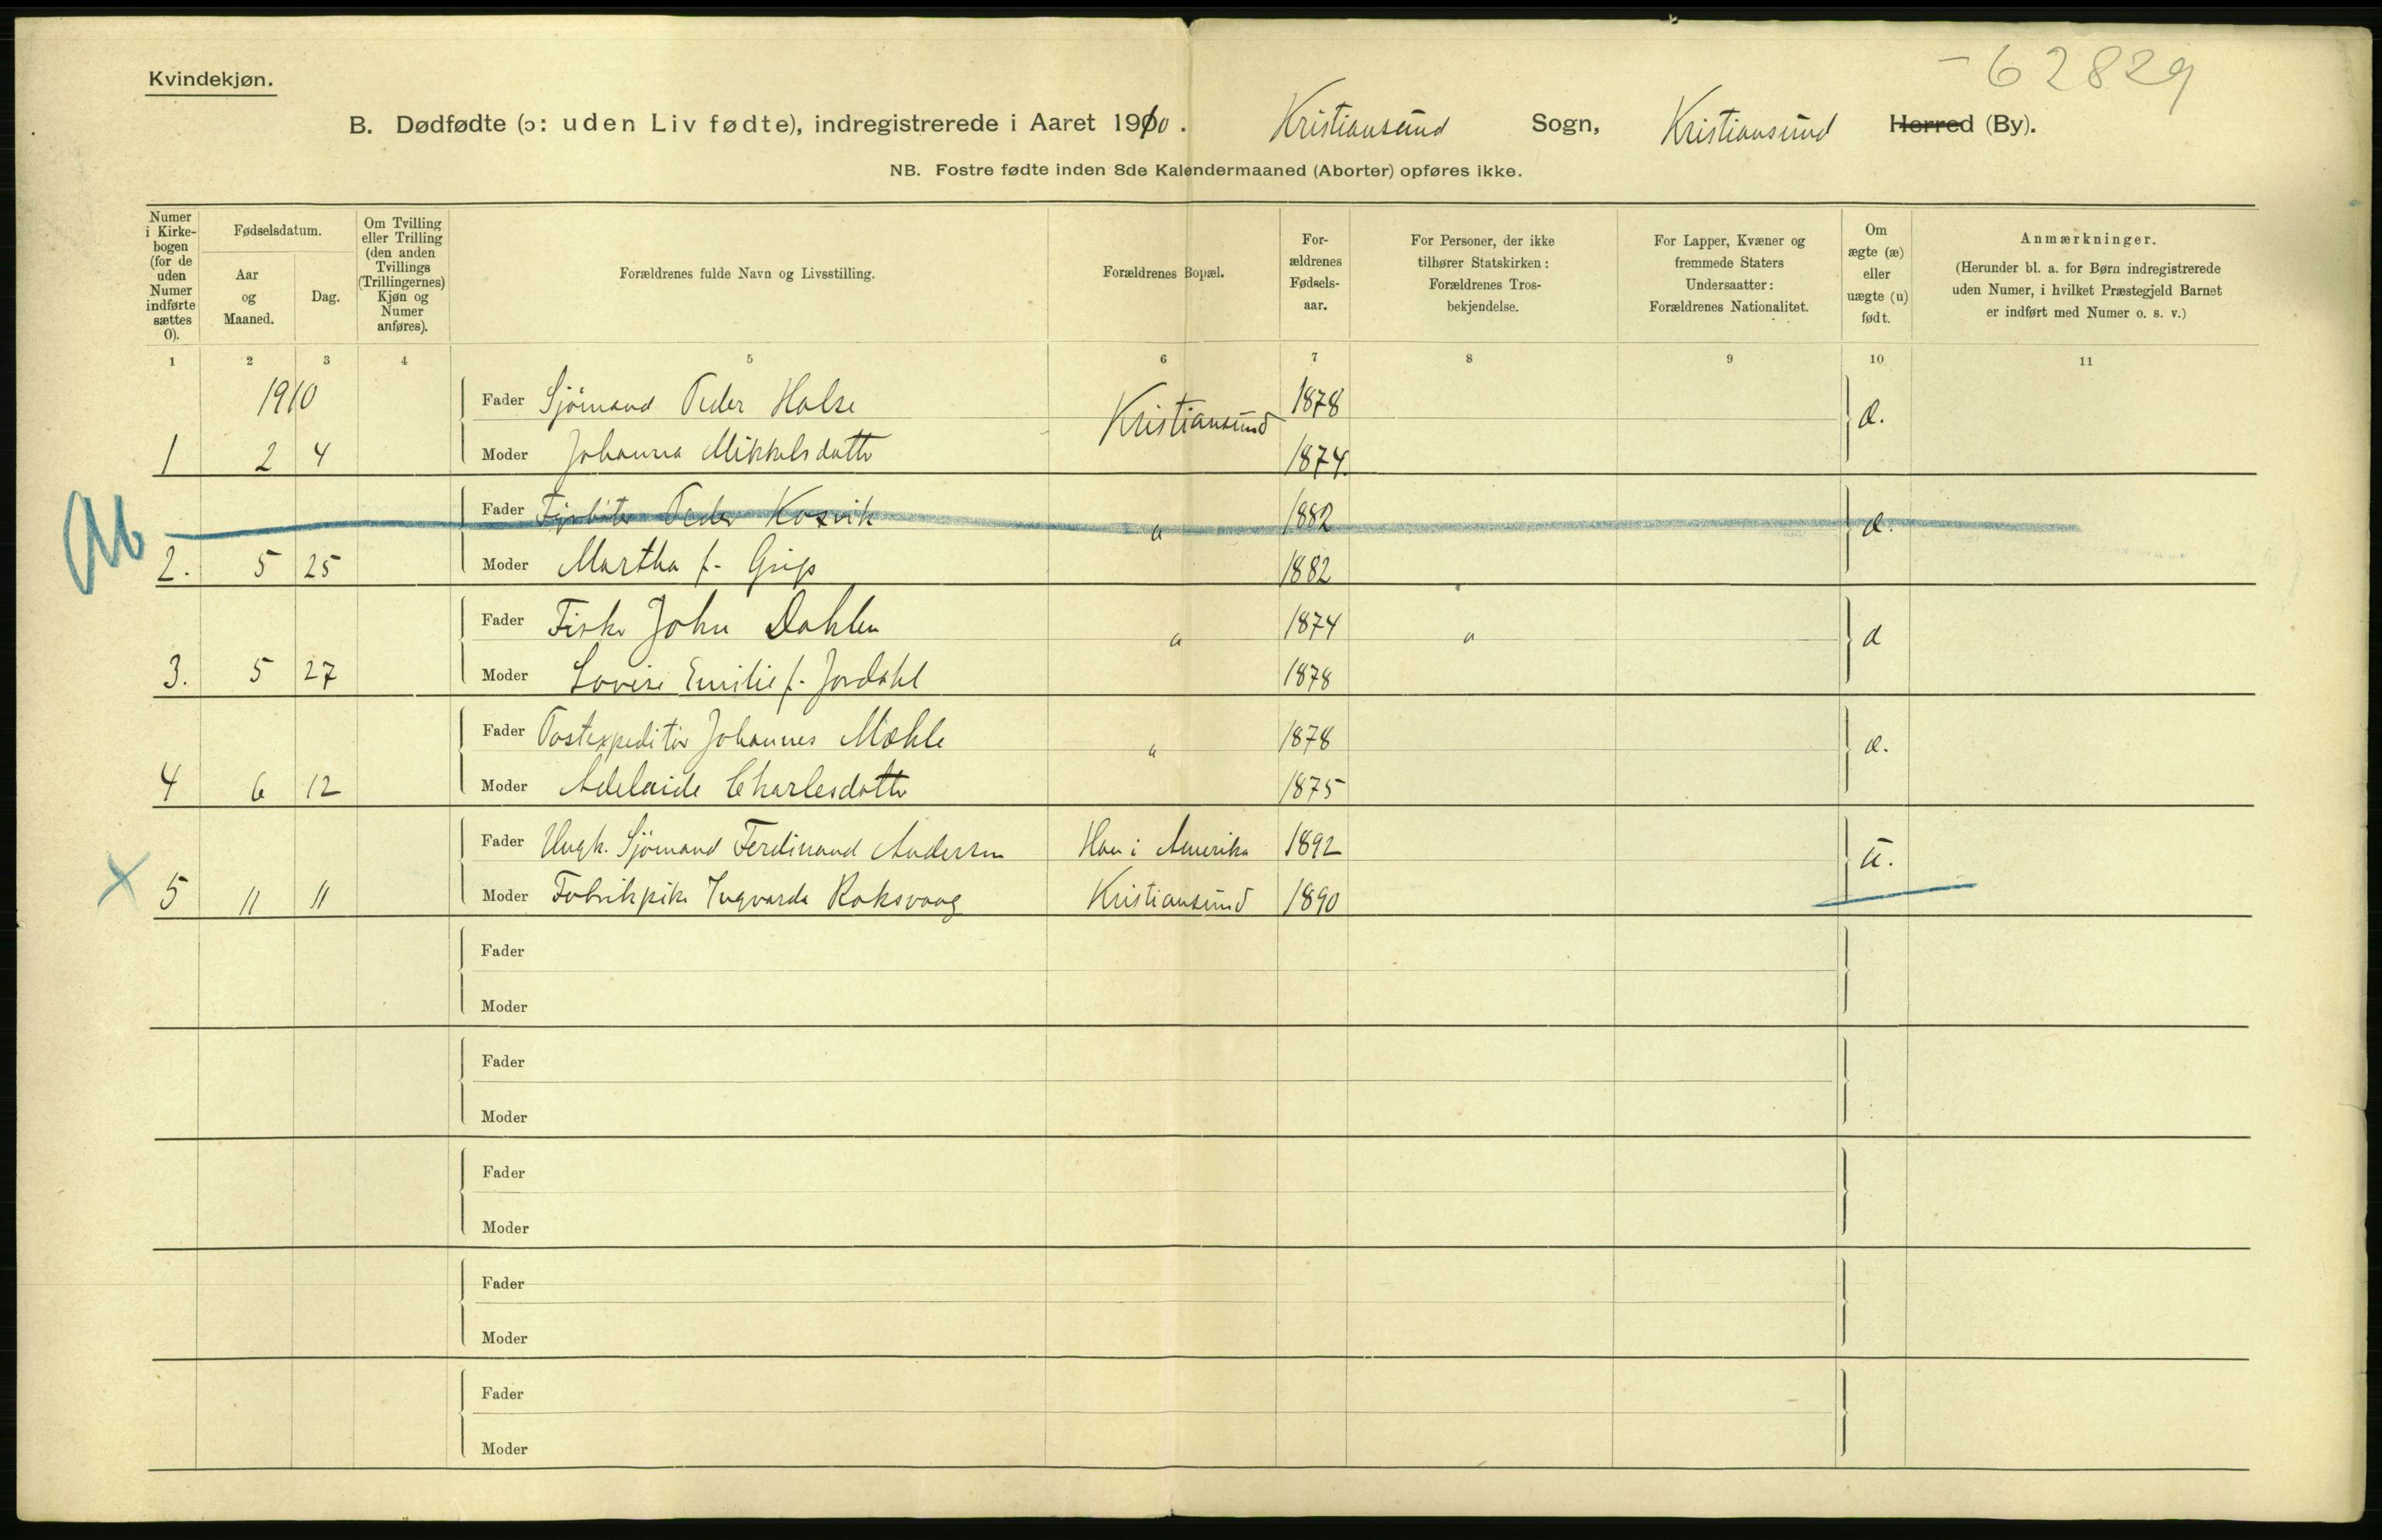 Kvindekjøn.
-62829
B. Dødfødte (ɔ: uden Liv fødte), indregistrerede i Aaret 1910. Kristiansund Sogn, Kristiansund Herred (By).
NB. Fostre fødte inden 8de Kalendermaaned (Aborter) opføres ikke.
Numer i Kirkebogen (for de uden Numer indførte sættes 0).
Fødselsdatum.
Aar og Maaned.
Dag.
Om Tvilling eller Trilling (den anden Tvillings (Trillingernes) Kjøn og Numer anføres).
Forældrenes fulde Navn og Livsstilling.
Forældrenes Bopæl.
Forældrenes Fødselsaar.
For Personer, der ikke tilhører Statskirken: Forældrenes Trosbekjendelse.
For Lapper, Kvæner og fremmede Staters Undersaatter: Forældrenes Nationalitet.
Om ægte (æ) eller uægte (u) født.
Anmærkninger.
(Herunder bl. a. for Børn indregistrerede uden Numer, i hvilket Præstegjeld Barnet er indført med Numer o. s. v.)
1 2 3 4 5 6 7 8 9 10 11
1910 Fader Sjömand Peder Halse Kristiansund 1878 æ.
1 2 4 Moder Johanna Mikkelsdatter 1874.
Ab
Fader Fyrböter Peder Kosvik " 1882 æ.
2. 5 25 Moder Martha f. Grip 1882
Fader Fisker John Dahlen " 1874 " æ
3. 5 27 Moder Lovise Emilie f. Jordahl 1878
Fader Postexpeditör Johannes Mæhle " 1878 æ.
4 6 12 Moder Adelaide Charlesdatter 1875
Fader Ungk. Sjömand Ferdinand Andersen Han i Amerika 1892 u.
X 5 11 11 Moder Fabrikpike Ingvarda Roksvaag Kristiansund 1890
Fader
Moder
Fader
Moder
Fader
Moder
Fader
Moder
Fader
Moder